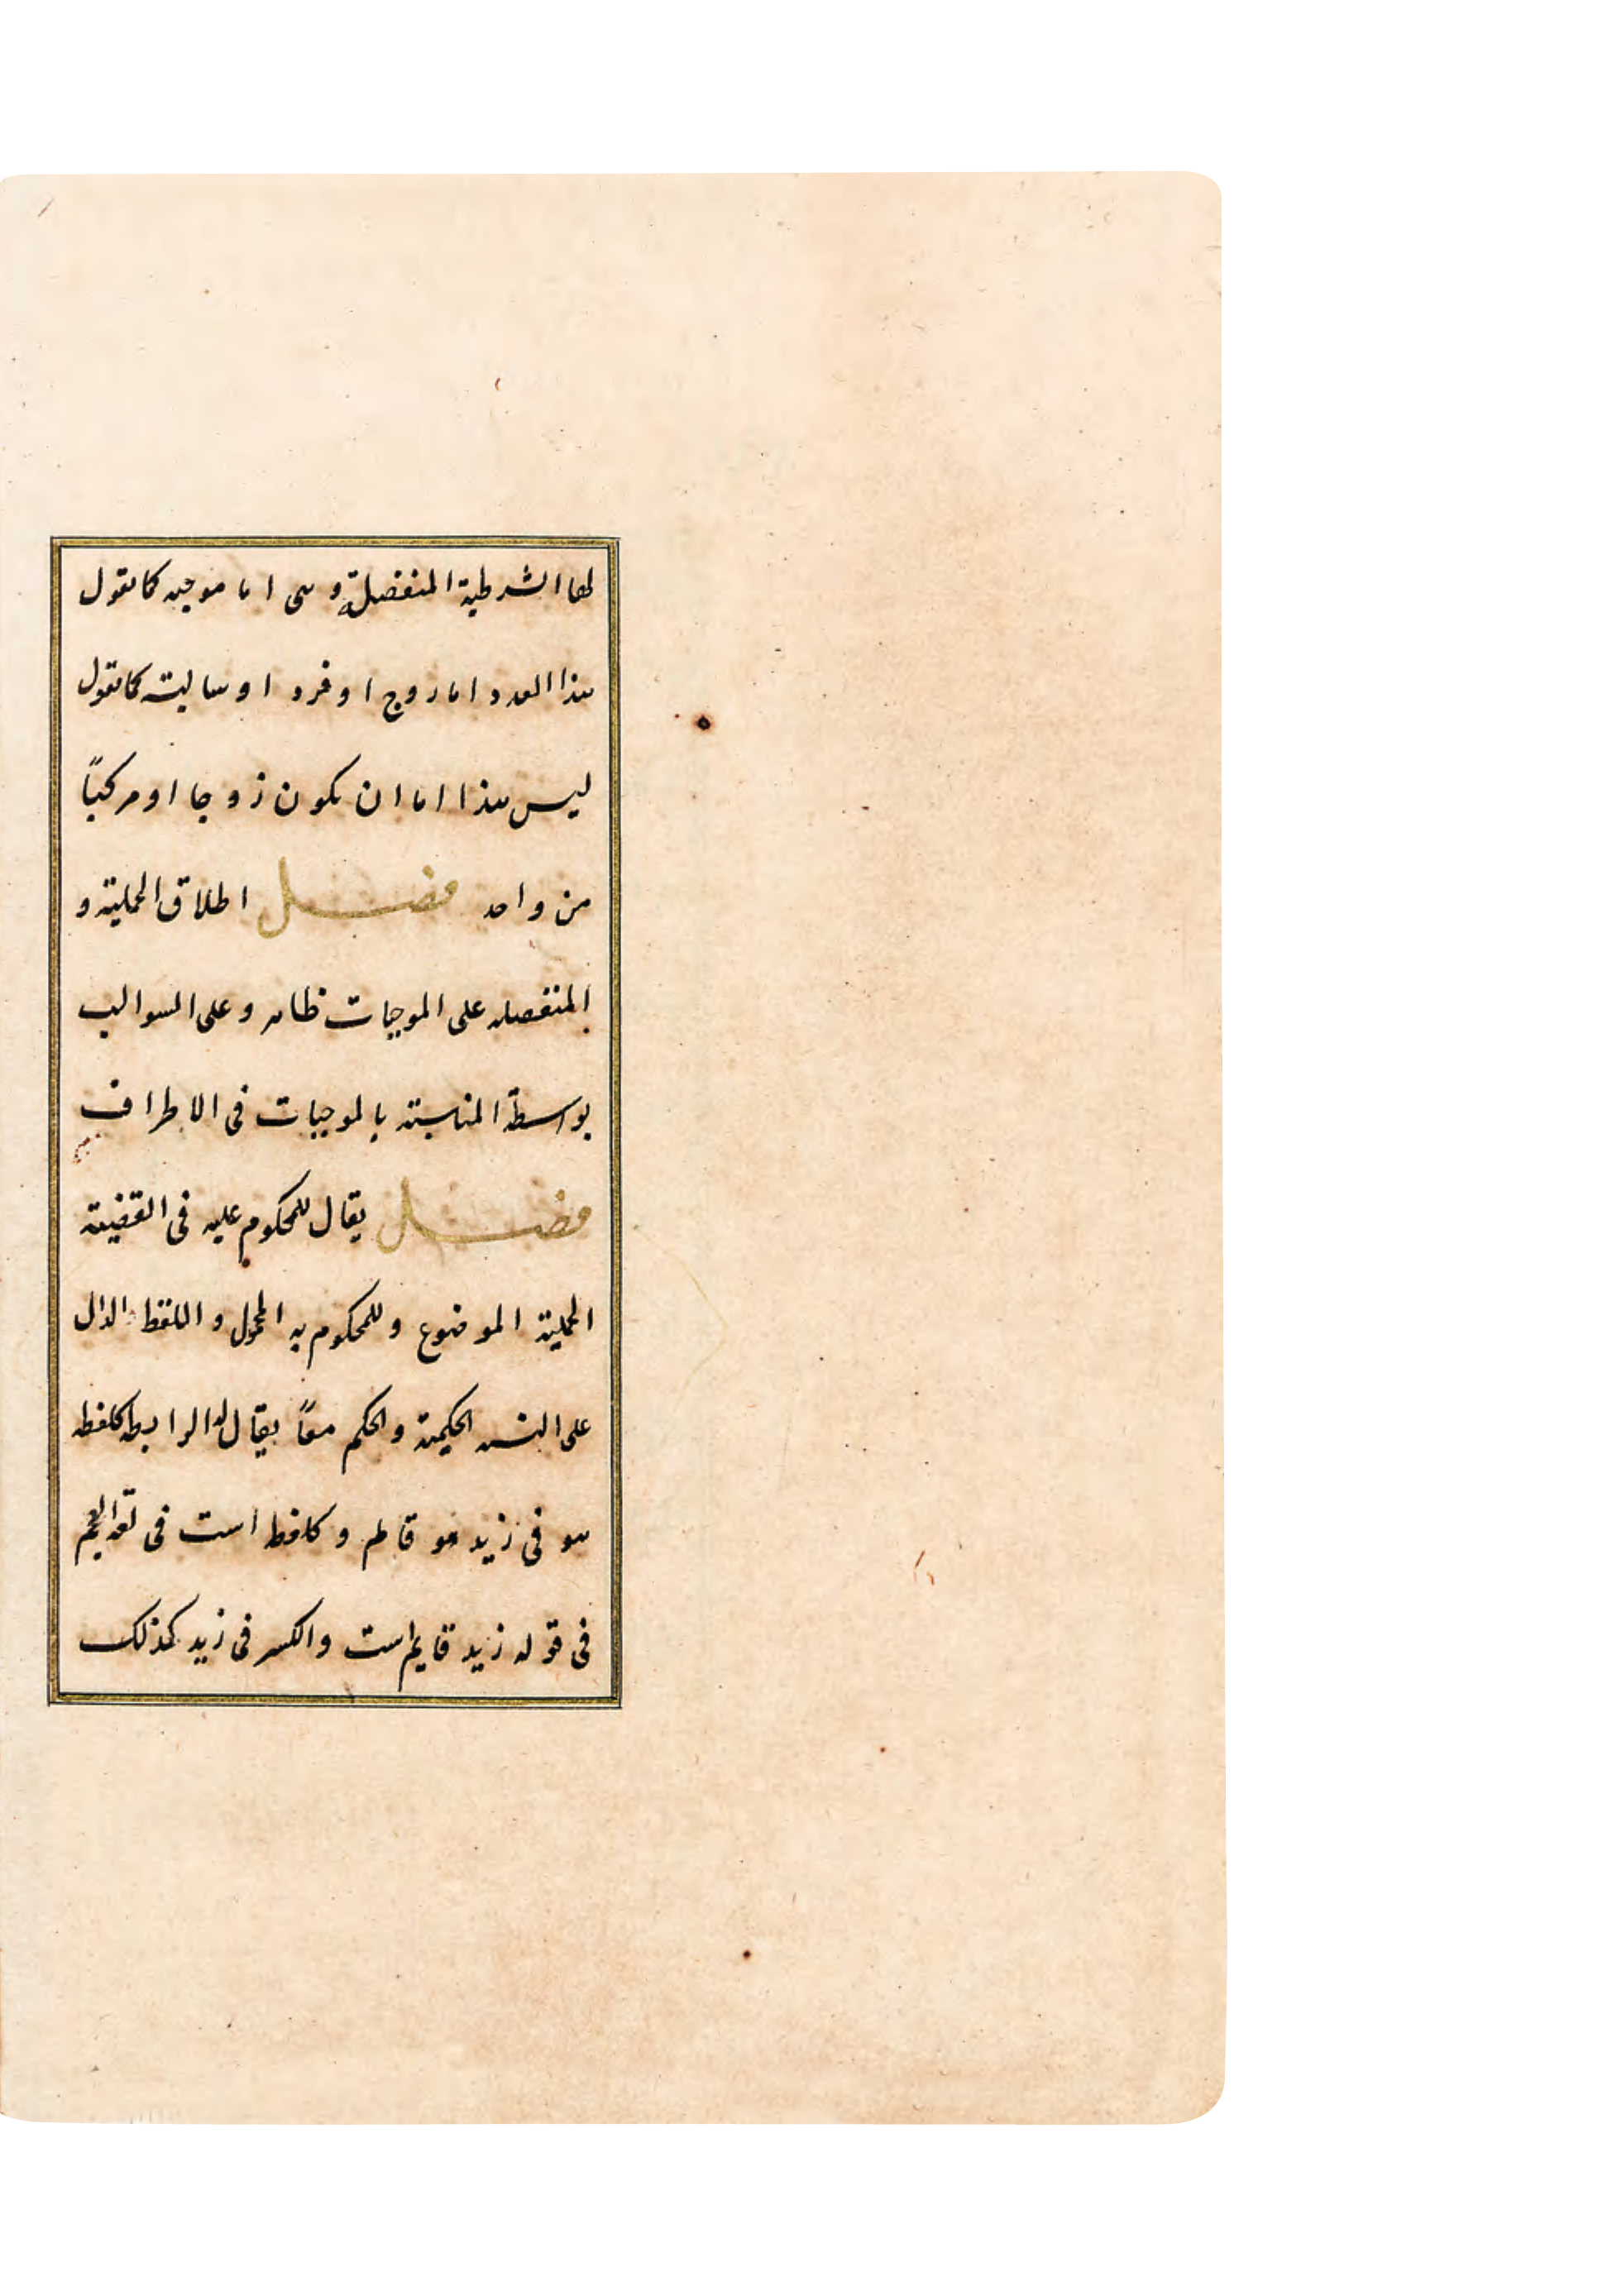 لها الشرطية المنفصلة وهى اما موجبه كما تقول
هذا العدد اما زوج او فرد او سالبته كما تقول
ليس هذا اما ان يكون زوجا او مركبًا
من واحد فصل اطلاق الحملية و
المنفصله على الموجبات ظاهر و على السوالب
بواسطة المناسبته بالموجبات فى الاطراف
فصل يقال للمحكوم عليه فى القضية
الحملية الموضوع وللمحكوم به المحمول و اللفظ الدال
على النسبه الحكيمة والحكم معًا يقال له الرابطه كلفظه
هو فى زيد هو قائم و كلفظ است فى لغة العجم
فى قوله زيد قايم است والكسر فى زيد كذلك